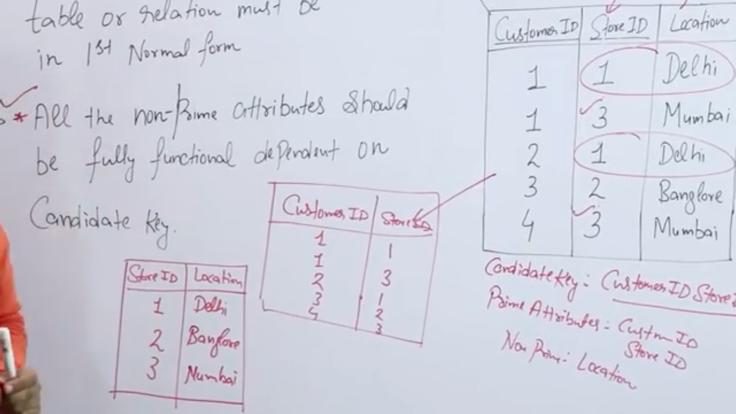 table or relation must be
in 1st Normal form
* All the non-Prime attributes Should
be fully functional dependent on
Candidate Key.
Customer ID Store ID Location
1 1 Delhi
1 3 Mumbai
2 1 Delhi
3 2 Banglore
4 3 Mumbai
Customer ID Store ID
1 1
1 3
2 1
3 2
4 3
Store ID Location
1 Delhi
2 Banglore
3 Mumbai
Candidate Key: Customer ID Store
Prime Attributes: Custm ID
Store ID
Non Prime: Location